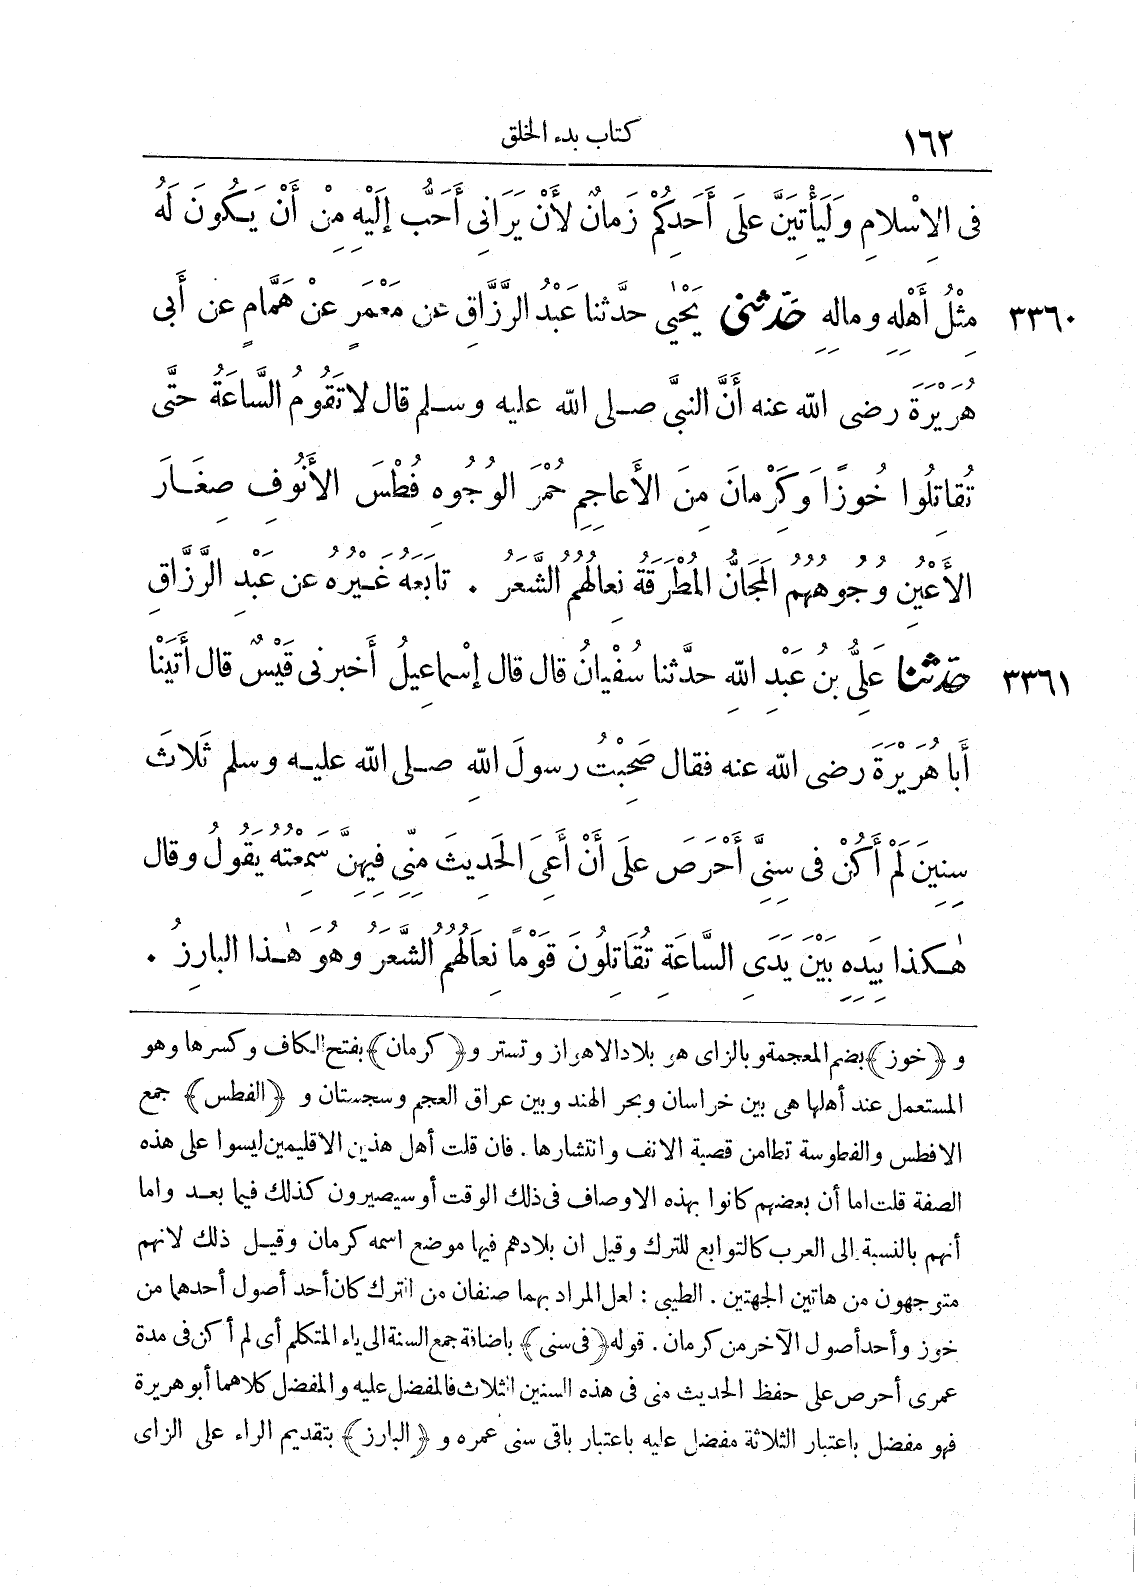 ١٦٢ كتاب بدء الخلق
فى الِاسْلامِ وَلَيَأْتِيَنَّ علَى أَحَدِكُمْ زَمانٌ لأَنْ يَرَانِى أَحَبُّ إلَيْهِ مِنْ أَنْ يَكُونَ لَهُ
٣٣٦٠ مِثْلُ أَهْلِهِ ومالِهِ حَدّثنى يَحْيَى حدَّثنا عَبْدُ الرَّزَّاقِ عن مَعْمَرٍ عنْ هَمَّامٍ عن أَبى
هُرَيْرَةَ رضى الله عنه أَنَّ النبىَّ صلى الله عليه وسلم قال لاتَقُومُ السَّاعَةُ حتَّى
تُقاتِلُوا خُوزًا وَكَرْمانَ مِنَ الأَعاجِمِ حُمْرَ الوُجُوهِ فُطْسَ الأُنُوفِ صِغَارَ
الأَعْيُنِ وُجُوهُهُمُ المَجَانُّ المُطْرَقَةُ نِعالُهُمُ الشَّعَرُ . تابَعَهُ غَيْرُهُ عن عَبْدِ الرَّزَّاقِ
٣٣٦١ حدّثنا عَلِىُّ بنُ عَبْدِ اللهِ حدَّثنا سُفْيانُ قال قال إسْماعِيلُ أَخبرنى قَيْسٌ قال أَتَيْنا
أَبا هُرَيْرَةَ رضى الله عنه فقال صَحِبْتُ رسولَ اللهِ صلى الله عليه وسلم ثَلاثَ
سِنِينَ لَمْ أَكُنْ فى سِنِىَّ أَحْرَصَ علَى أَنْ أَعِىَ الحَدِيثَ مِنِّى فِيهِنَّ سَمِعْتُهُ يَقُولُ وقال
هٰكذا بِيَدِهِ بَيْنَ يَدَىِ السَّاعَةِ تُقَاتِلُونَ قَوْمًا نِعَالُهُمُ الشَّعَرُ وهُوَ هٰذا البارِزُ .
و ﴿خوز﴾ بضم المعجمة وبالزاى هو بلاد الاهواز وتستر و ﴿كرمان﴾ بفتح الكاف وكسرها وهو
المستعمل عند أهلها هى بين خراسان وبحر الهند وبين عراق العجم وسجستان و ﴿الفطس﴾ جمع
الافطس والفطوسة تطامن قصبة الانف وانتشارها . فان قلت أهل هذين الاقليمين ليسوا على هذه
الصفة قلت اما أن بعضهم كانوا بهذه الاوصاف فى ذلك الوقت أوسيصيرون كذلك فيما بعد واما
أنهم بالنسبة الى العرب كالتوابع للترك وقيل ان بلادهم فيها موضع اسمه كرمان وقيل ذلك لانهم
متوجهون من هاتين الجهتين . الطيبى : لعل المراد بهما صنفان من الترك كان أحد أصول أحدهما من
خوز وأحد أصول الآخر من كرمان . قوله ﴿فى سنى﴾ باضافة جمع السنة الى ياء المتكلم أى لم أكن فى مدة
عمرى أحرص على حفظ الحديث منى فى هذه السنين الثلاث فالمفضل عليه والمفضل كلاهما أبو هريرة
فهو مفضل باعتبار الثلاثة مفضل عليه باعتبار باقى سنى عمره و ﴿البارز﴾ بتقديم الراء على الزاى